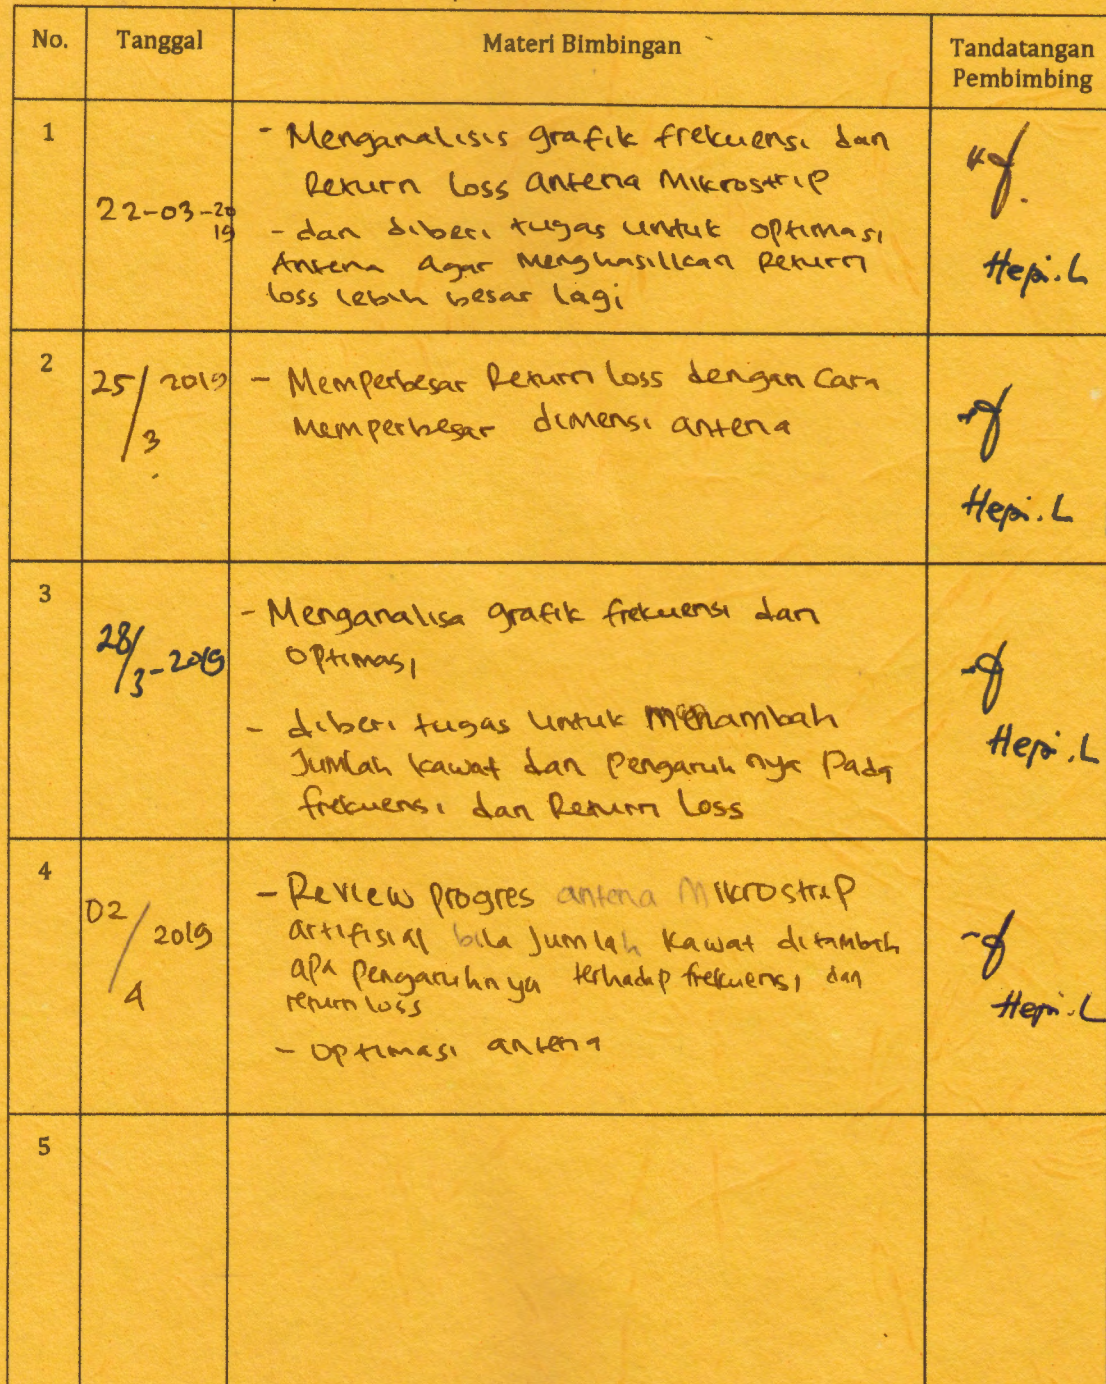 No.
Tanggal
Materi Bimbingan
Tandatangan
Pembimbing
1
22-03-20
19
- Menganalisis grafik frekuensi dan
Return loss antena Mikrostrip
- dan diberi tugas untuk optimasi
Antena agar Menghasilkan Return
loss lebih besar lagi
Hepi.L
2
25/3 2019
- Memperbesar Return loss dengan Cara
Memperbesar dimensi antena
Hepi.L
3
28/3-2019
- Menganalisa grafik frekuensi dan
Optimasi
- diberi tugas untuk Menambah
Jumlah kawat dan Pengaruh nya Pada
frekuensi dan Return Loss
Hepi.L
4
02/4 2019
- Review progres antena Mikrostrip
artifisial bila Jumlah kawat ditambah
apa pengaruhnya terhadap frekuensi dan
return loss
- Optimasi antena
Hepi.L
5